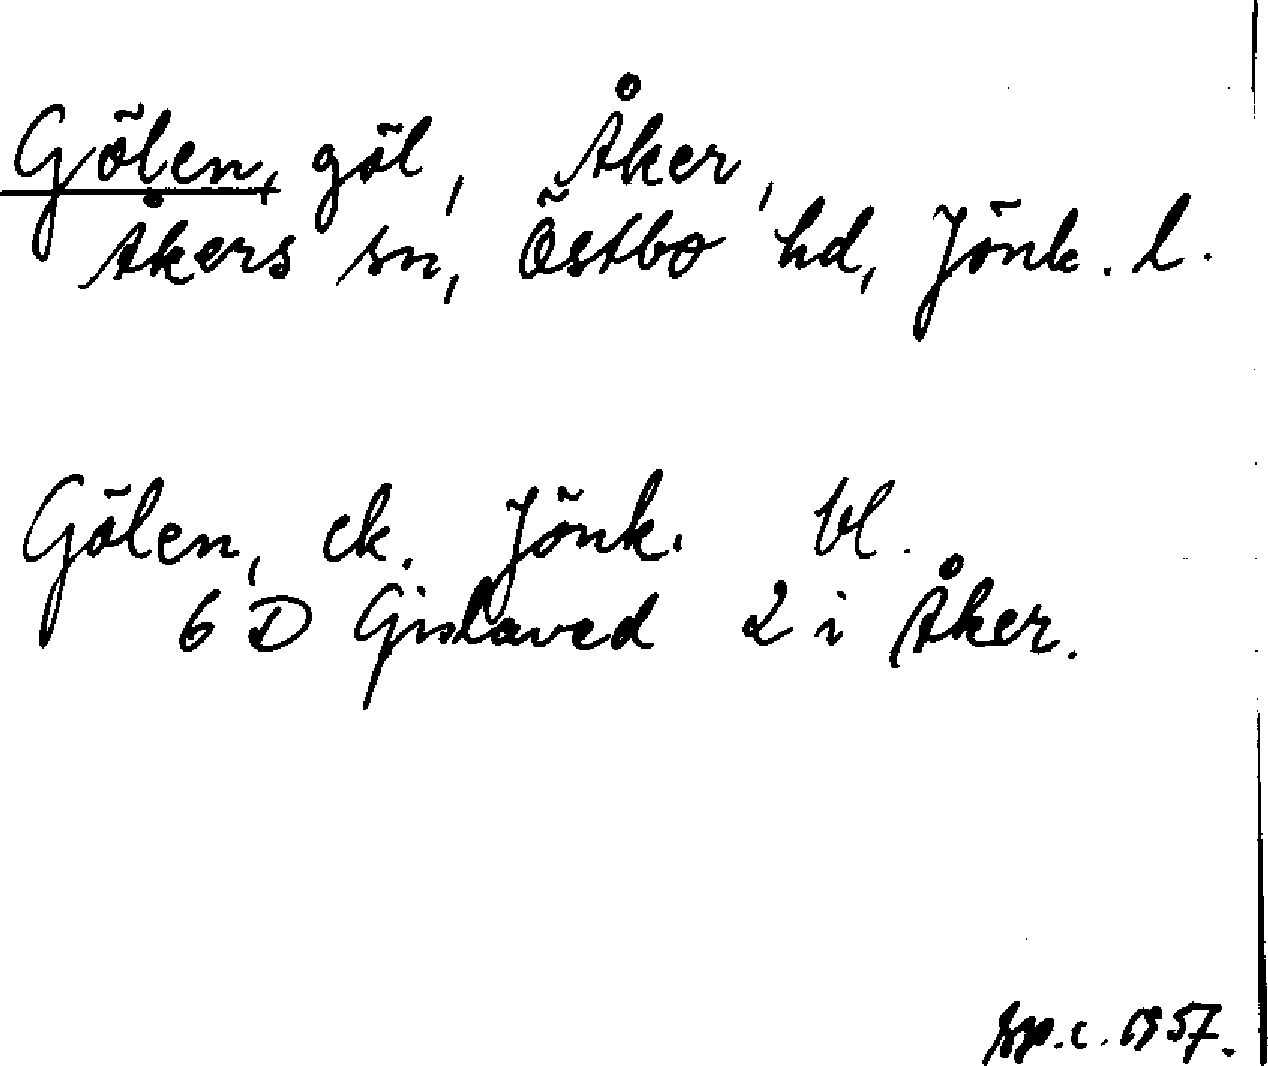 Gölen, göl, Åker,
Åkers sn, Östbo hd, Jönk. l.
Gölen, ek. Jönk. bl.
6 D Gislaved 2 i Åker.
sp.c. 1957.